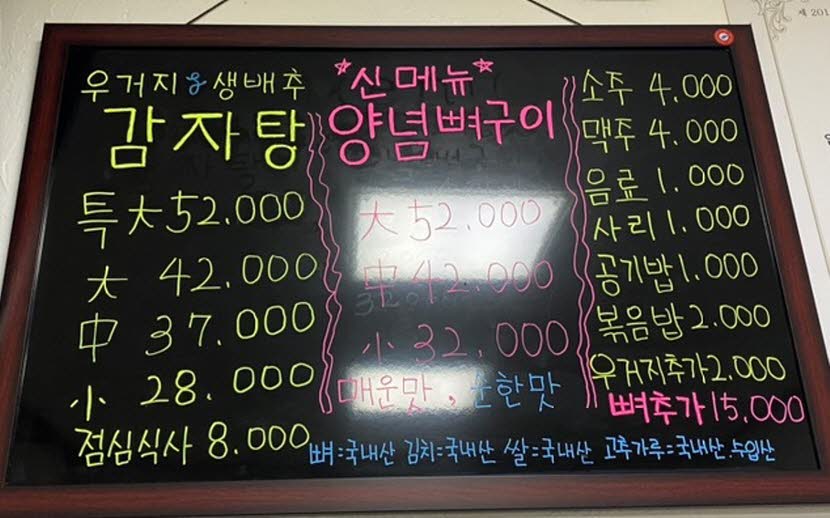 우거지 & 생배추
감자탕
특大 52.000
大 42.000
中 37.000
小 28.000
점심식사 8.000
*신메뉴*
양념뼈구이
大 52.000
中 42.000
小 32.000
매운맛, 순한맛
소주 4.000
맥주 4.000
음료 1.000
사리 1.000
공기밥 1.000
볶음밥 2.000
우거지추가 2.000
뼈추가 15,000
뼈=국내산 김치=국내산 쌀=국내산 고추가루=국내산.수입산
제 201